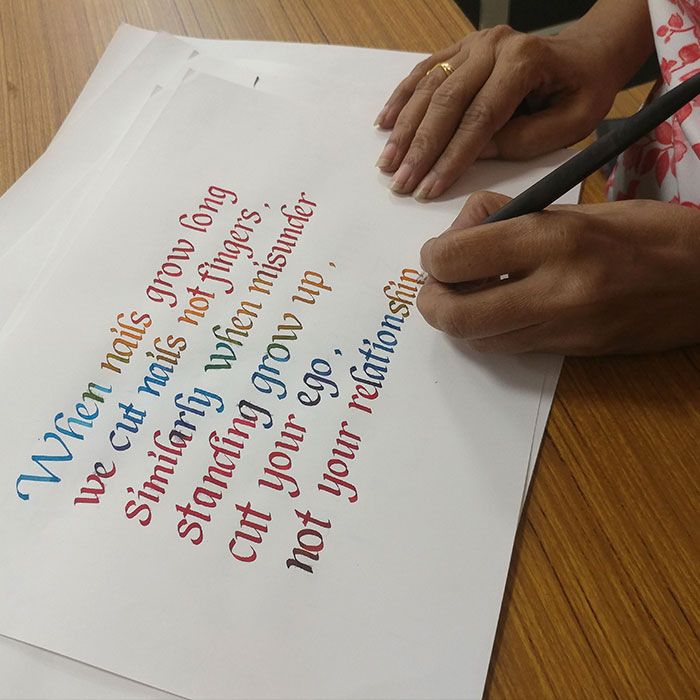 When nails grow long
we cut nails not fingers,
similarly when misunder
standing grow up,
cut your ego,
not your relationship